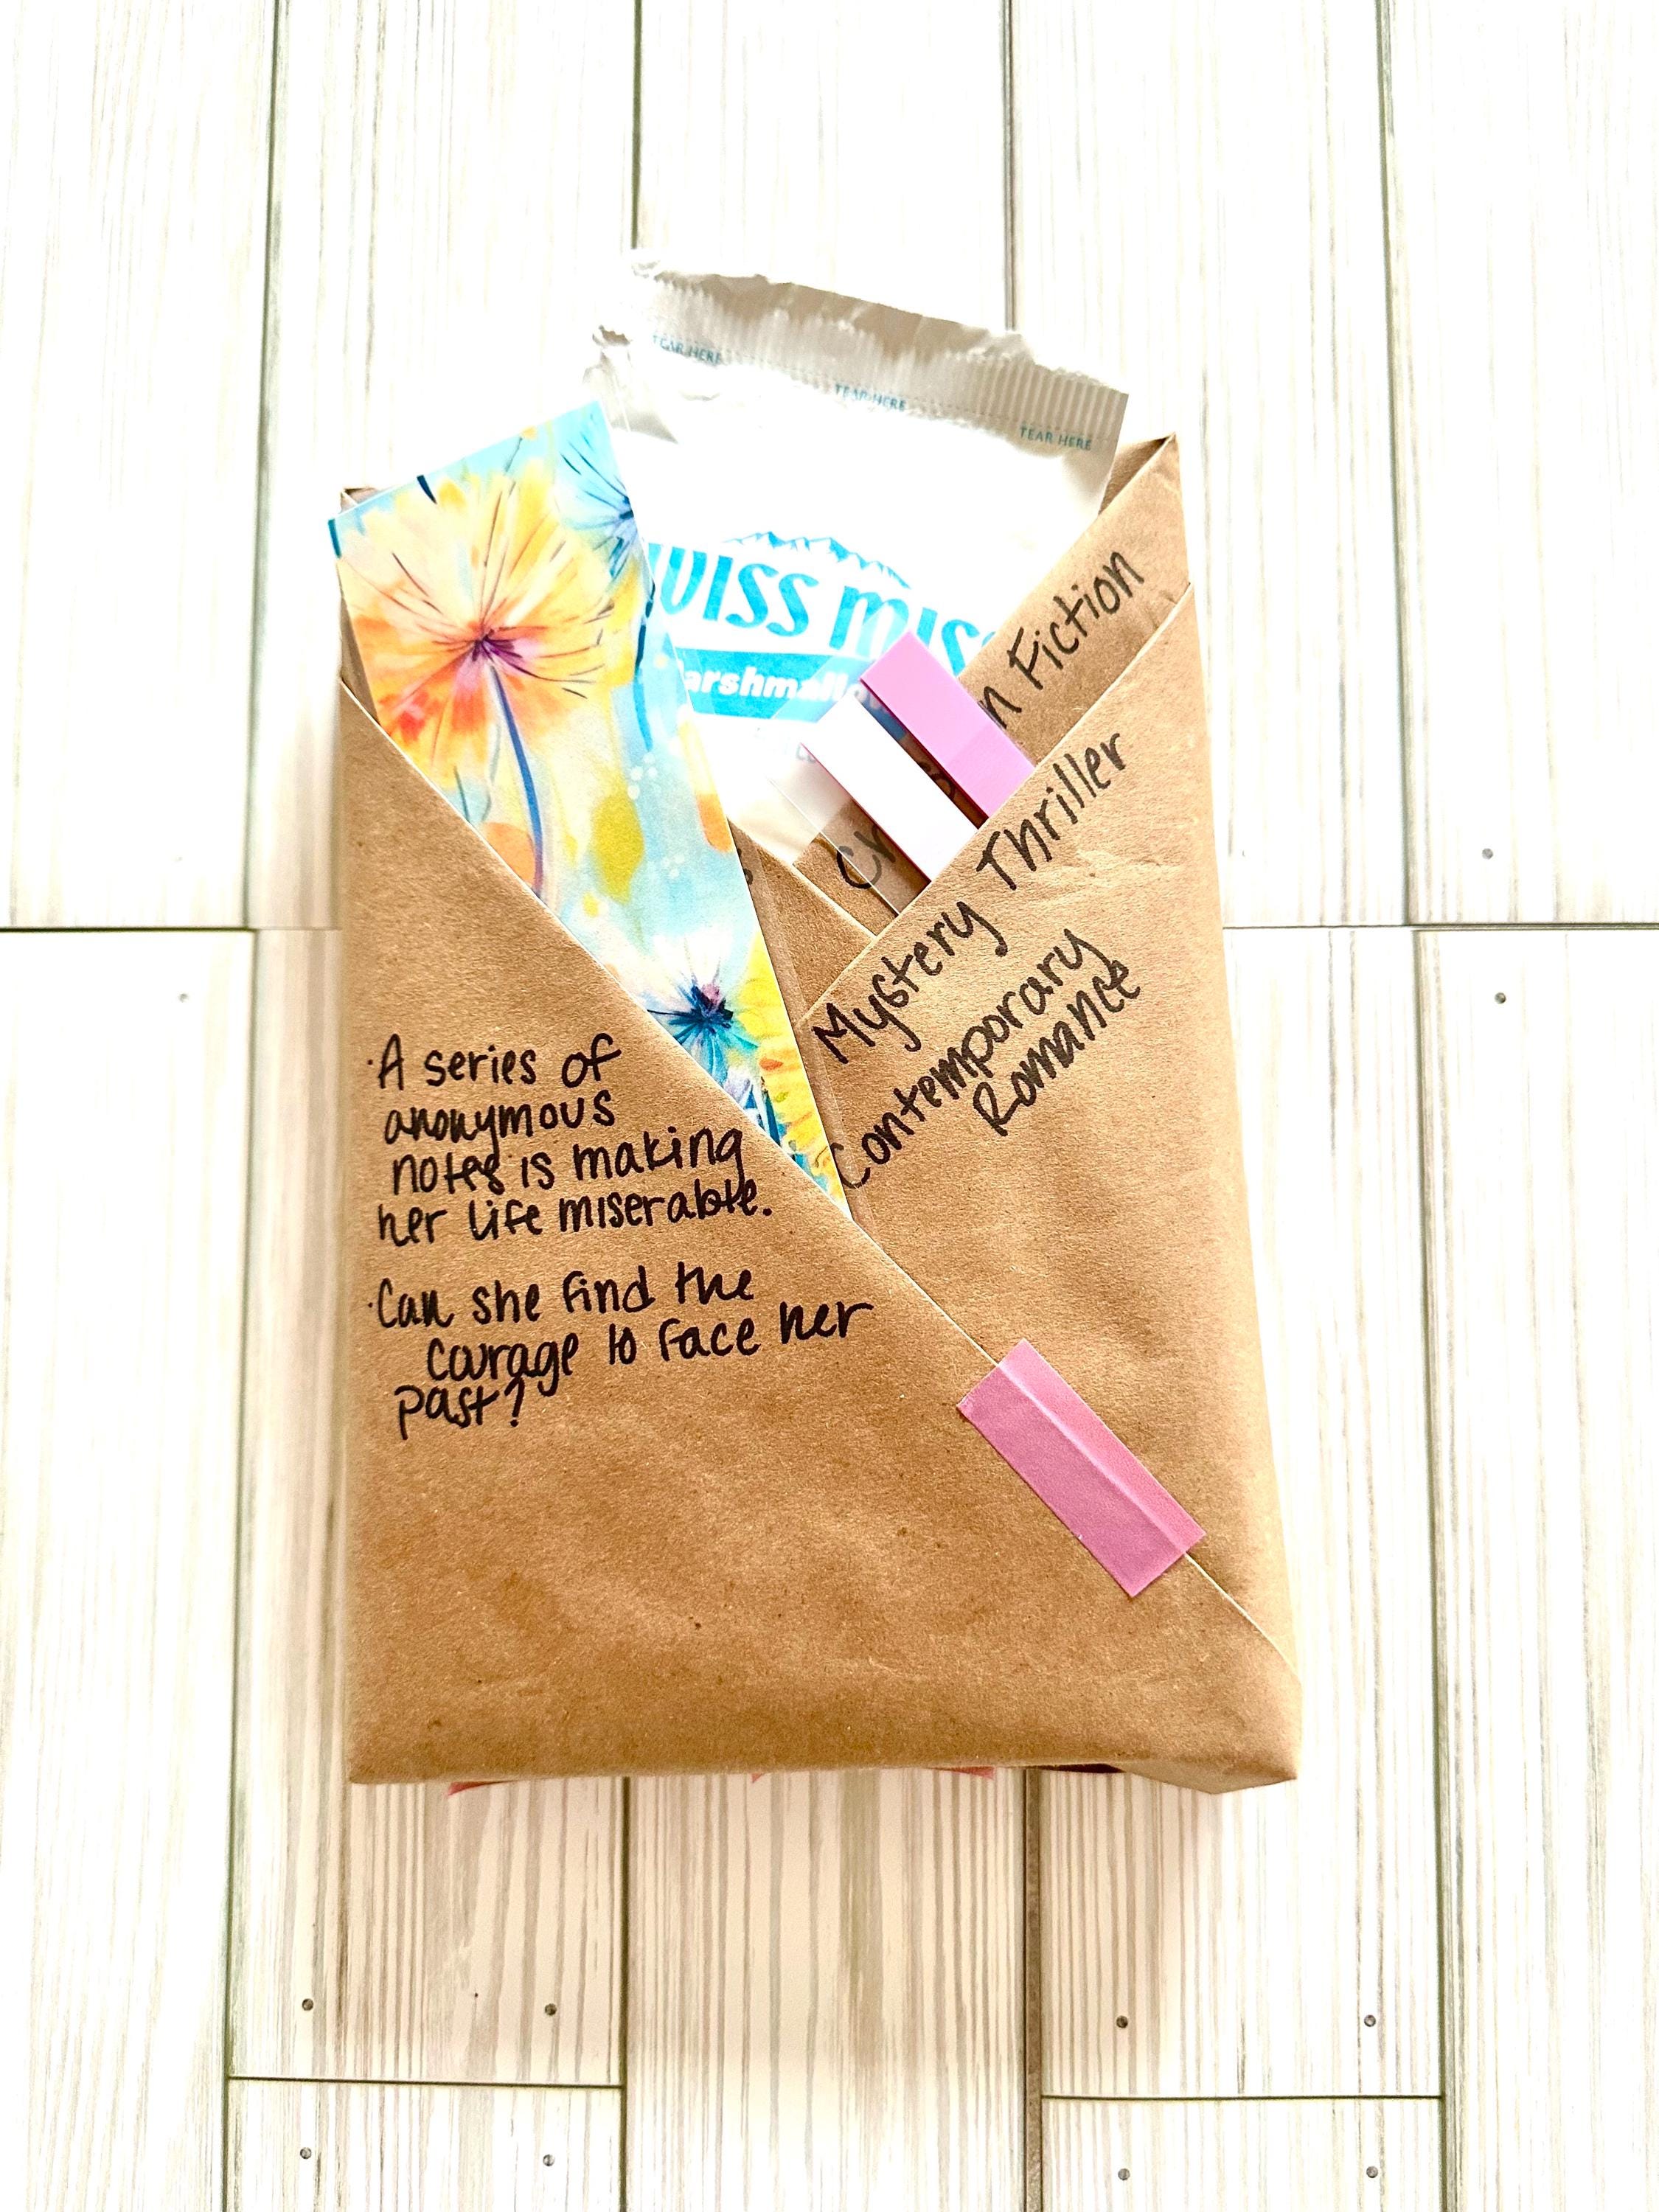 TEAR HERE TEAR HERE TEAR HERE
WISS MISS
arshmallo
n Fiction
Mystery Thriller
Contemporary
Romance
·A series of
anonymous
notes is making
her life miserable.
·Can she find the
courage to face her
past?